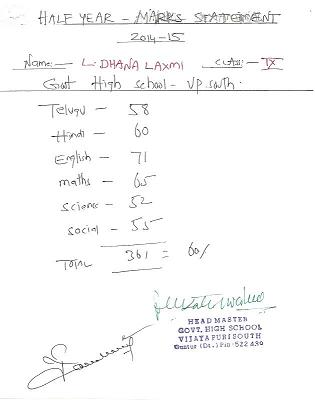 HALF YEAR - MARKS STATEMENT
2014-15
Name:- L. DHANA LAXMI CLASS:- IX
Govt High school - V.P. South.
Telugu - 58
Hindi - 60
English - 71
maths - 65
science - 52
social - 55
TOTAL 361 = 60/
HEAD MASTER
GOVT. HIGH SCHOOL
VIJAYAPURI SOUTH
Guntur (Dt.) Pin: 522 439